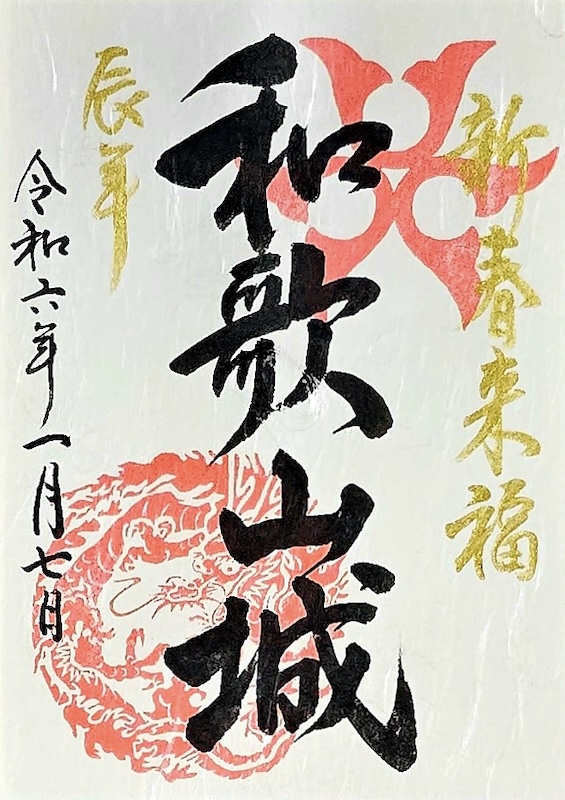 新春来福
和歌山城
辰年
令和六年一月七日